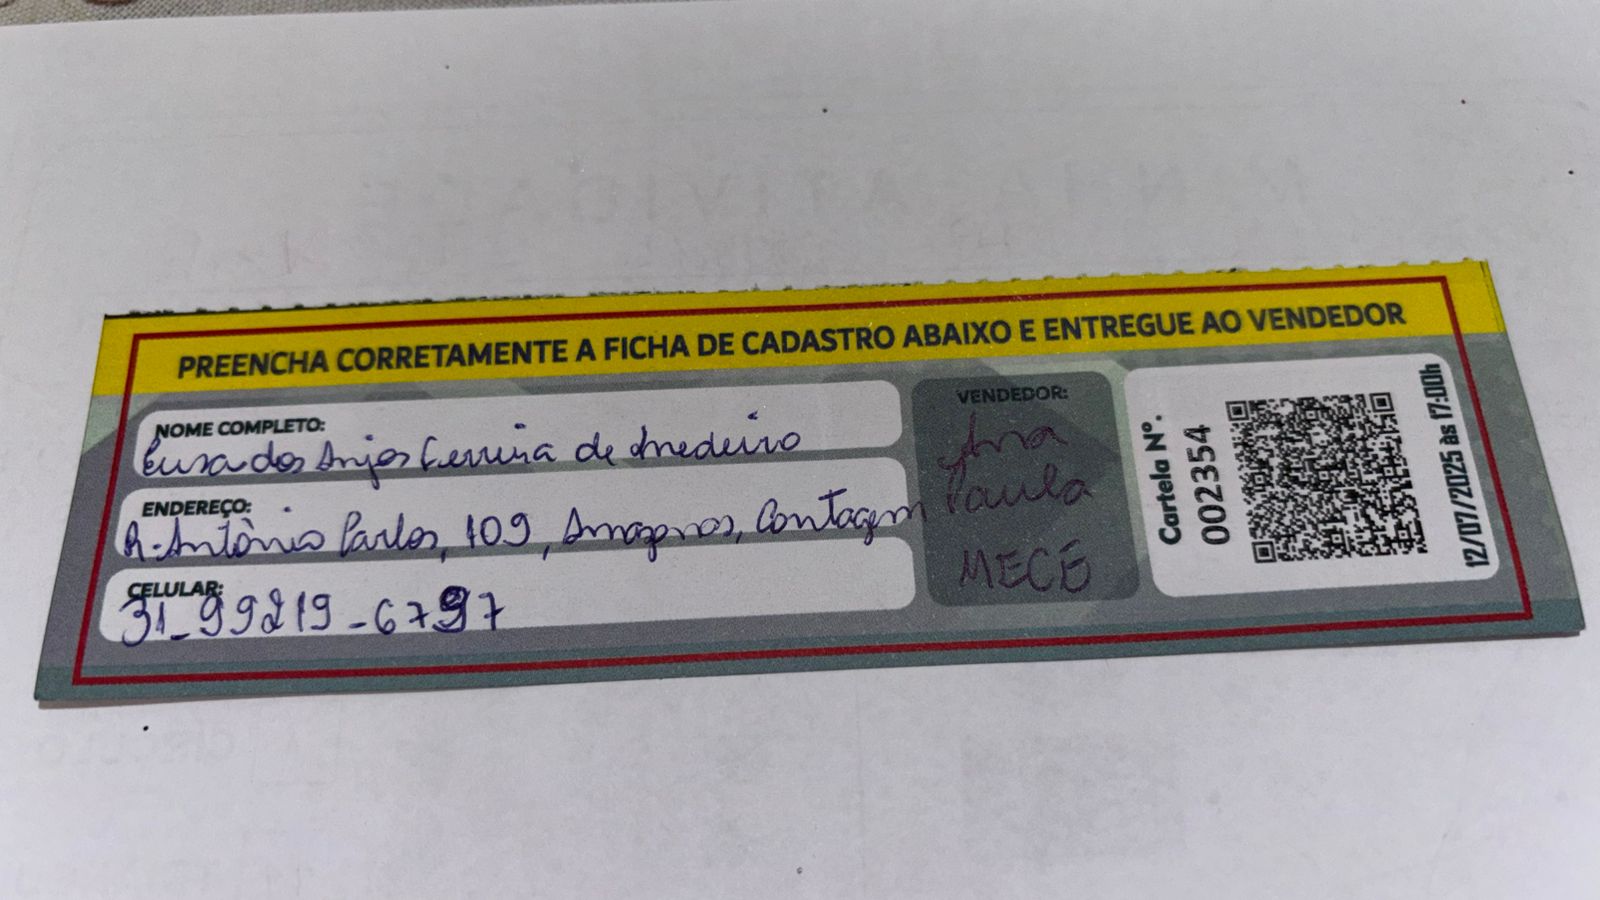 PREENCHA CORRETAMENTE A FICHA DE CADASTRO ABAIXO E ENTREGUE AO VENDEDOR
NOME COMPLETO:
dos Anjos Ferreira de Medeiro
ENDEREÇO:
R. Antônio Carlos, 109, Amazonas, Contagem
CELULAR:
31_99219-6797
VENDEDOR:
Ana
Paula
MECE
Cartela Nº.
002354
12/07/2025 às 17:00h